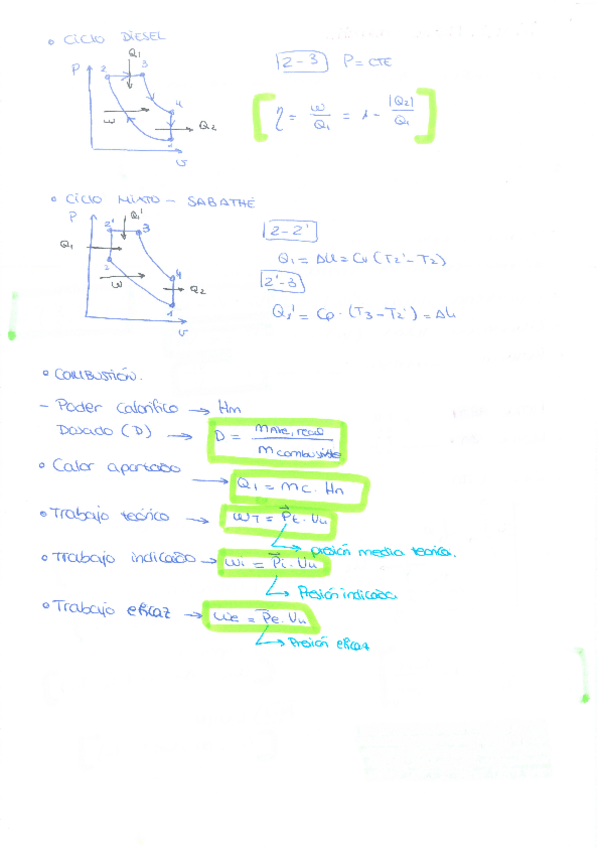 • CICLO DIESEL
Q1
P 2 3
4
W Q2
1
v
2-3 P = CTE
η = W/Q1 = 1 - |Q2|/Q1
• CICLO MIXTO - SABATHÉ
P Q1'
2' 3
Q1
2 4
W Q2
1
v
2-2'
Q1 = ΔU = Cv (T2' - T2)
2'-3
Q1' = Cp · (T3 - T2') = ΔU
• COMBUSTIÓN.
- Poder calorífico → Hn
Dosado (D) → D = m Aire, real / m combustible
• Calor aportado → Q1 = mc · Hn
• Trabajo teórico → WT = Pt · Vu
→ presión media teorica.
• Trabajo indicado → Wi = Pi · Vu
→ Presión indicada
• Trabajo eficaz → We = Pe · Vu
→ Presión eficaz